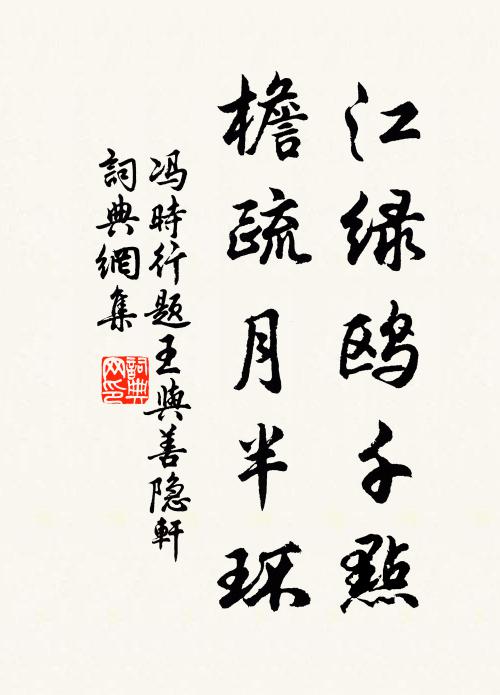 江绿鸥千點
檐疏月半环
冯時行题王與善隐軒
詞典網集
詞典网印